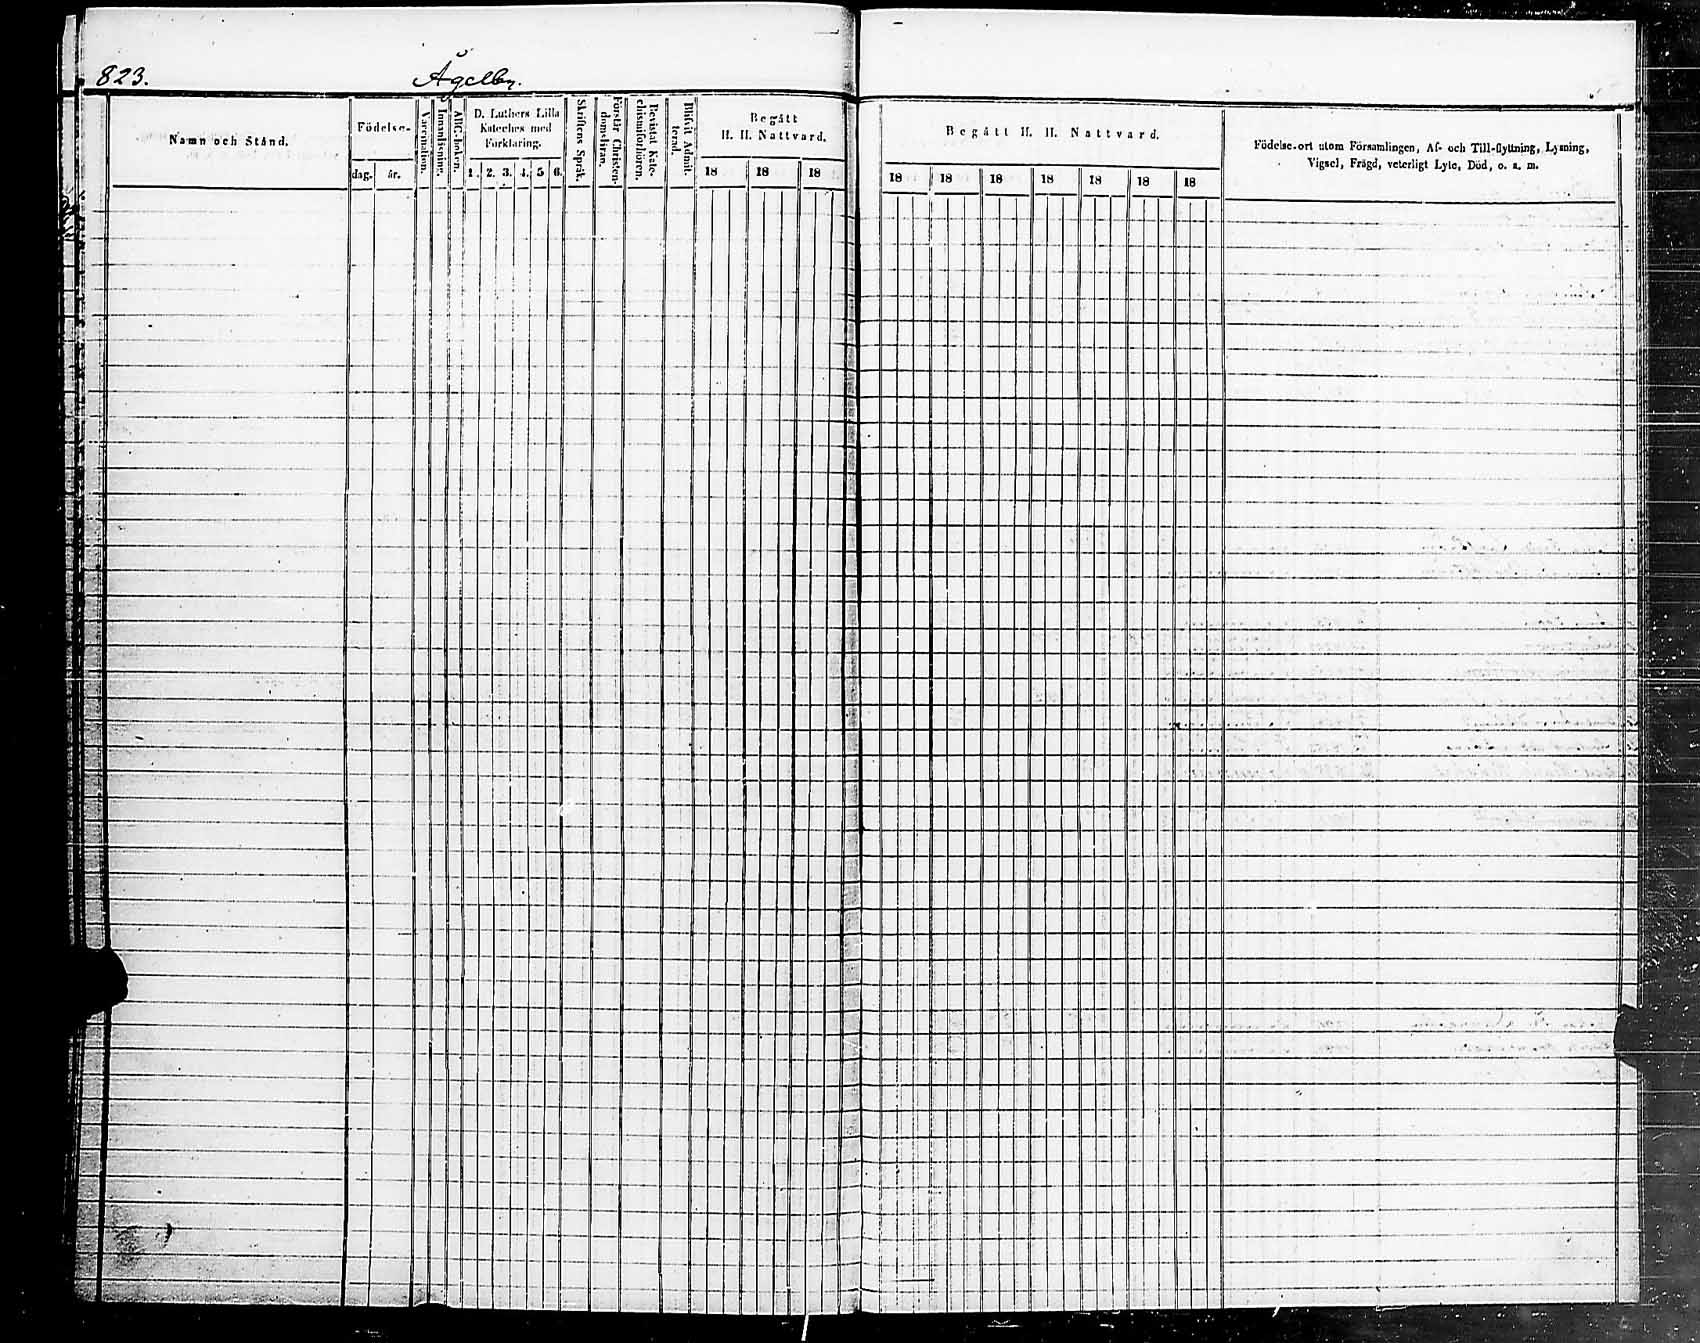 823.
Ågelby.
Namn och Stånd.
Födelse-
dag.
år.
Vaccination.
Innanläsning.
ABC-boken.
D. Luthers Lilla
Kateches med
Förklaring.
1. 2. 3. 4. 5 6.
Skriftens Språk.
Förstår Christen-
domsläran.
Bevistat Kate-
chismiförhören.
Blifvit Admit-
terad.
Begått
H. H. Nattvard.
18 18 18
Begått H. H. Nattvard.
18 18 18 18 18 18 18
Födelse-ort utom Församlingen, Af- och Till-flyttning, Lysning,
Vigsel, Frägd, veterligt Lyte, Död, o. s. m.